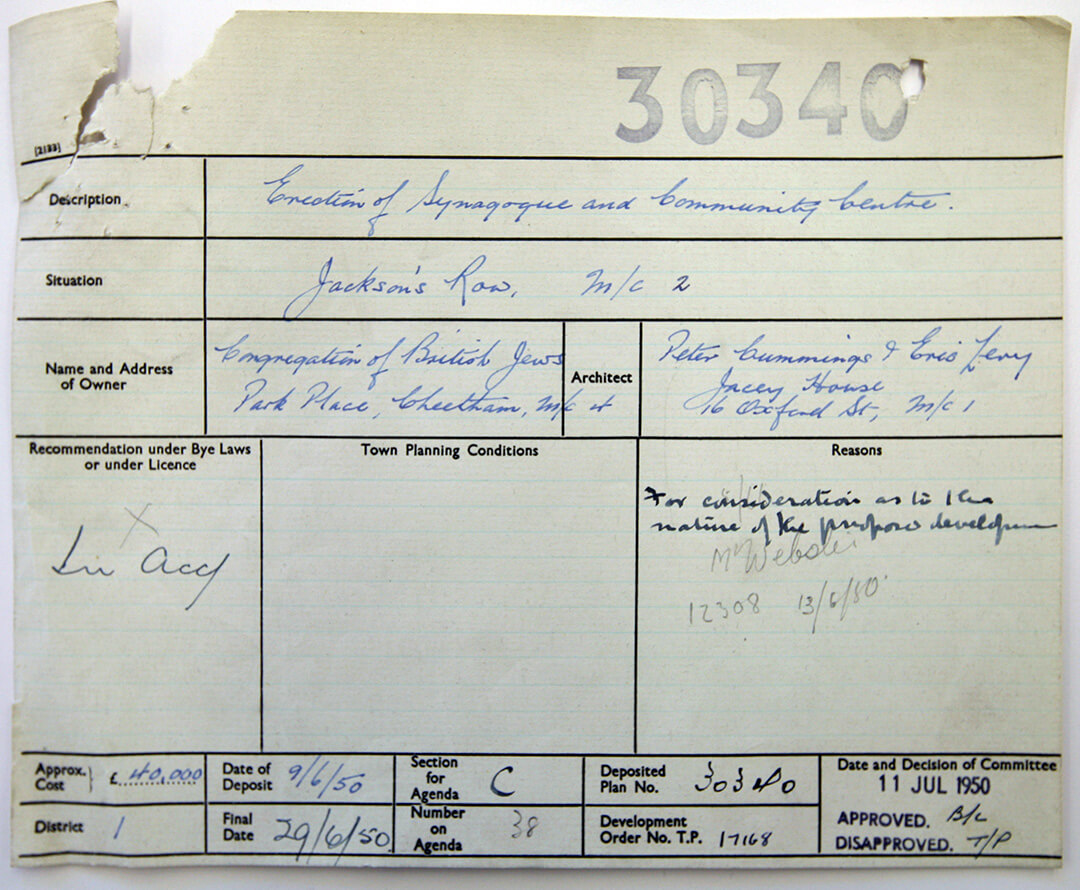 30340
[2133]
Description
Erection of Synagogue and Community Centre.
Situation
Jackson's Row, M/c 2
Name and Address
of Owner
Congregation of British Jews
Park Place, Cheetham, M/c 4
Architect
Peter Cummings & Eric Levy
Jacey House
16 Oxford St, M/c 1
Recommendation under Bye Laws
or under Licence
X
In Acc
Town Planning Conditions
Reasons
For consideration as to the
nature of the propose developm
Mr Webster
12308 13/6/50
Approx.
Cost
£ 40,000
Date of
Deposit
9/6/50
Section
for
Agenda
C
Deposited
Plan No.
30340
Date and Decision of Committee
11 JUL 1950
District
1
Final
Date
29/6/50
Number
on
Agenda
38
Development
Order No. T.P. 17168
APPROVED. B/L
DISAPPROVED. T/P